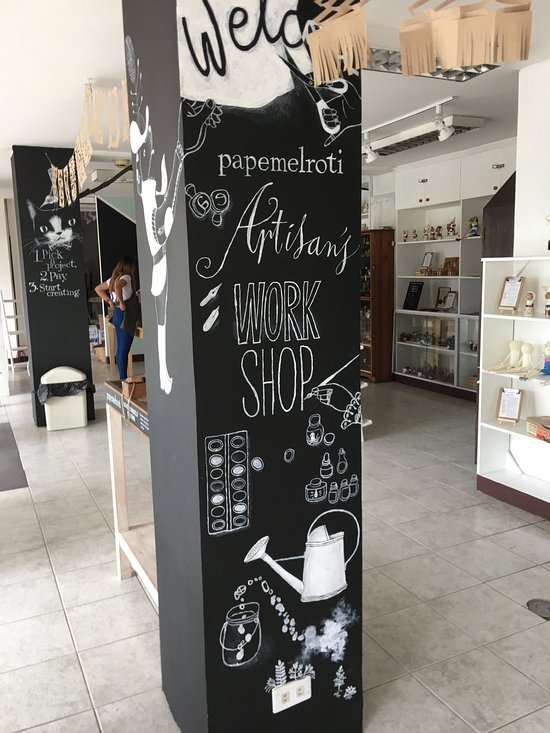 Welco
papemelroti
Artisan's
WORK
SHOP
1. Pick
a project.
2. Pay.
3. Start
creating.